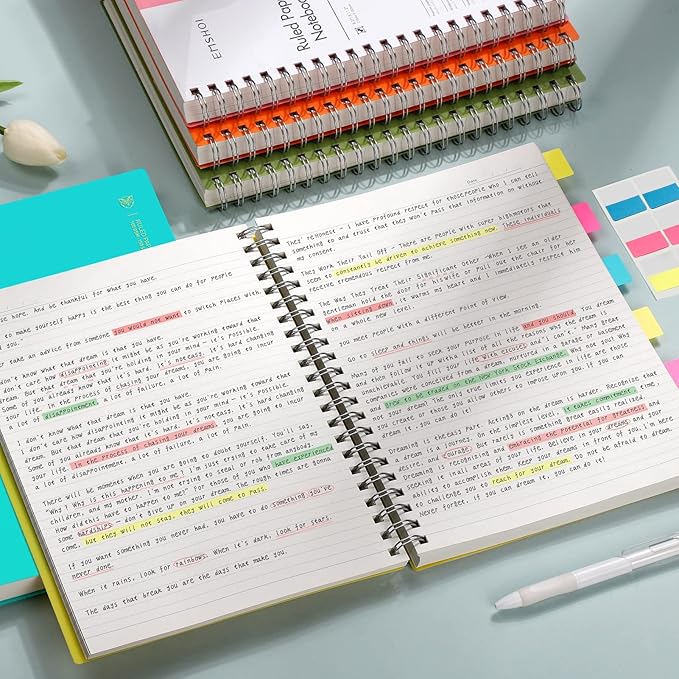 EMSHOI
Ruled Paper
Notebook
use here. And be thankful for what you have.
to make yourself happy is the best thing you can do for people
take an advice from someone you would not want to switch places with.
don't know what that dream is that you have.
don't care how disappointing it might be as you're working toward that
But that dream that you're holding in your mind - it's possible.
Some of you already know that it's hard. It's not easy. It's hard changing
your life. In the process of chasing your dreams you are going to incur
a lot of disappointment, a lot of failure, a lot of pain.
I don't know what that dream is that you have.
I don't care how disappointing it might be as you're working toward that
dream. But that dream that you're holding in your mind - it's possible.
Some of you already know that it's hard. It's not easy. It's hard changing
your life. In the process of chasing your dreams you are going to incur
a lot of disappointment, a lot of failure, a lot of pain.
There will be moments when you are going to doubt yourself. You'll say,
"Why? Why is this happening to me? I'm just trying to take care of my
children, and my mother. I'm not trying to steal or rob from anybody.
How did this have to happen to me? For those of you who have experienced
some hardships - don't give up on your dream. The rough times are gonna
come, but they will not stay, they will come to pass.
If you want something you never had, you have to do something you've
never done.
When it rains, look for rainbows. When it's dark, look for stars.
The days that break you are the days that make you.
Date
They're Honest - I have profound respect for those people who I can tell
something to and trust that they won't pass that information on without
my consent.
They Work Their Tail Off - There are people with super highmotors that
seem to constantly be driven to achieve something new. These individuals
receive tremendous respect from me.
The Way They Treat Their Significant Other - When I see an older
gentleman hold the door for his wife or pull out the chair for her
when sitting down it warms my heart and I immediately respect him
on a whole new level.
you meet people with a different point of view.
Go to sleep and things will be better in the morning.
Many of you fail to seek your purpose in life and you should. You dream
and then follow it up with a list of all the reasons why the dream is
unachievable. You fill your life with excuses and I can't's. Many great
companies were conceived from a dream, nurtured in a garage or basement
and grew to be traded on the New York Stock Exchange. Why not you? Why
not your dream? The only true limits you experience in life are those
you create and those you allow others to impose upon you. If you can
dream it, you can do it!
Dreaming is the easy part. Acting on the dream is harder. Recognize that
a dream is a journey. On the simplest level, it takes commitment, time,
desire and courage. Rarely is something great easily realized.
Dreaming is recognizing and embracing the potential for greatness and
seeking it in all areas of your life. Believe in your dreams and your
abilities to accomplish them. Keep your dreams in front of you. I'm here
to challenge you to reach for your dream. Do not be afraid to dream.
Never forget, if you can dream it, you can do it!